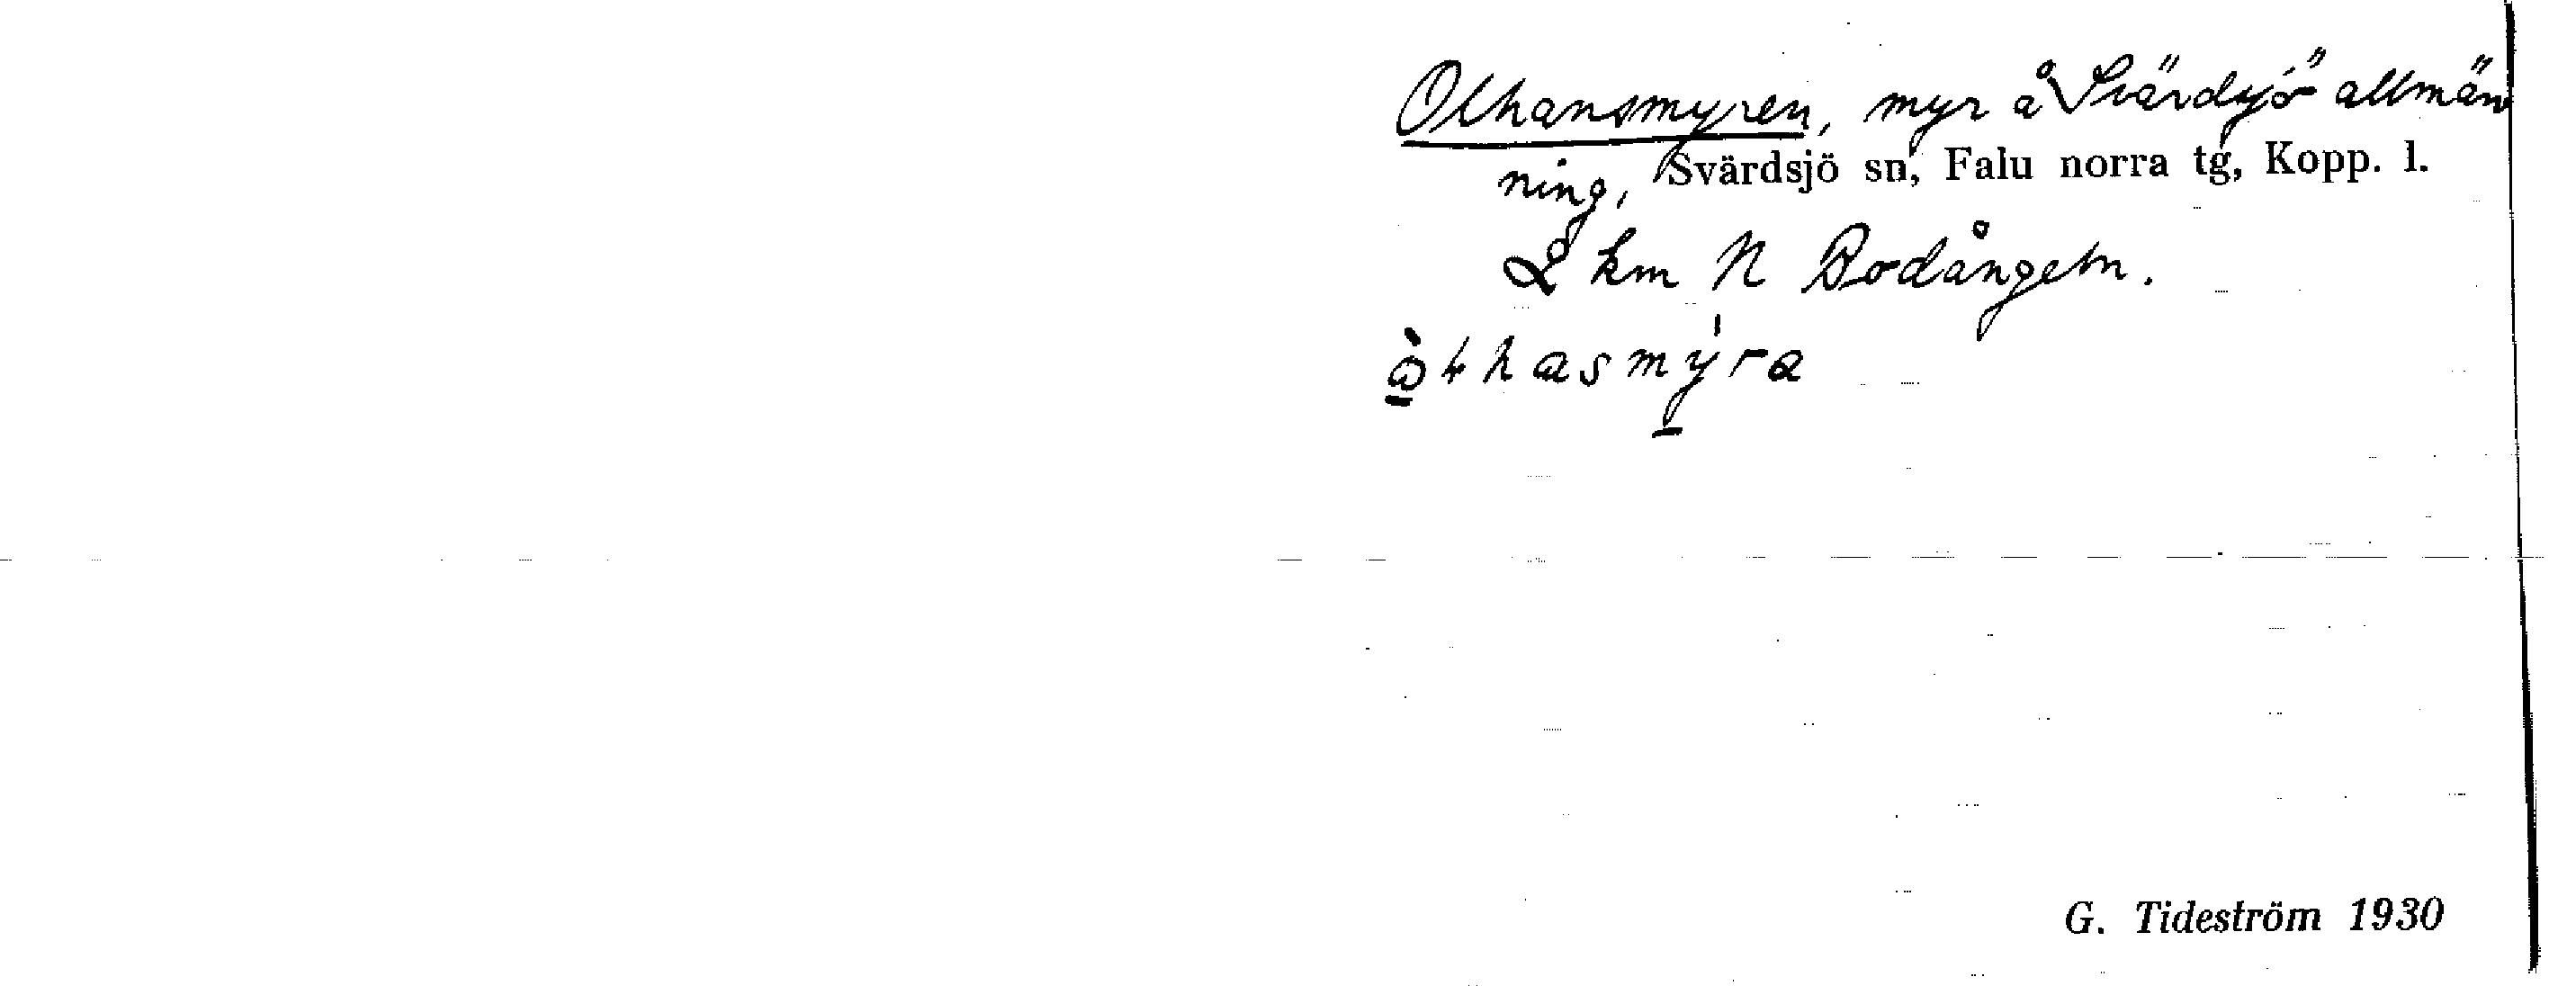 Olhansmyren, myr å Svärdsjö allmän
ning, Svärdsjö sn, Falu norra tg, Kopp. l.
2 km N Bodångeln.
G. Tideström 1930